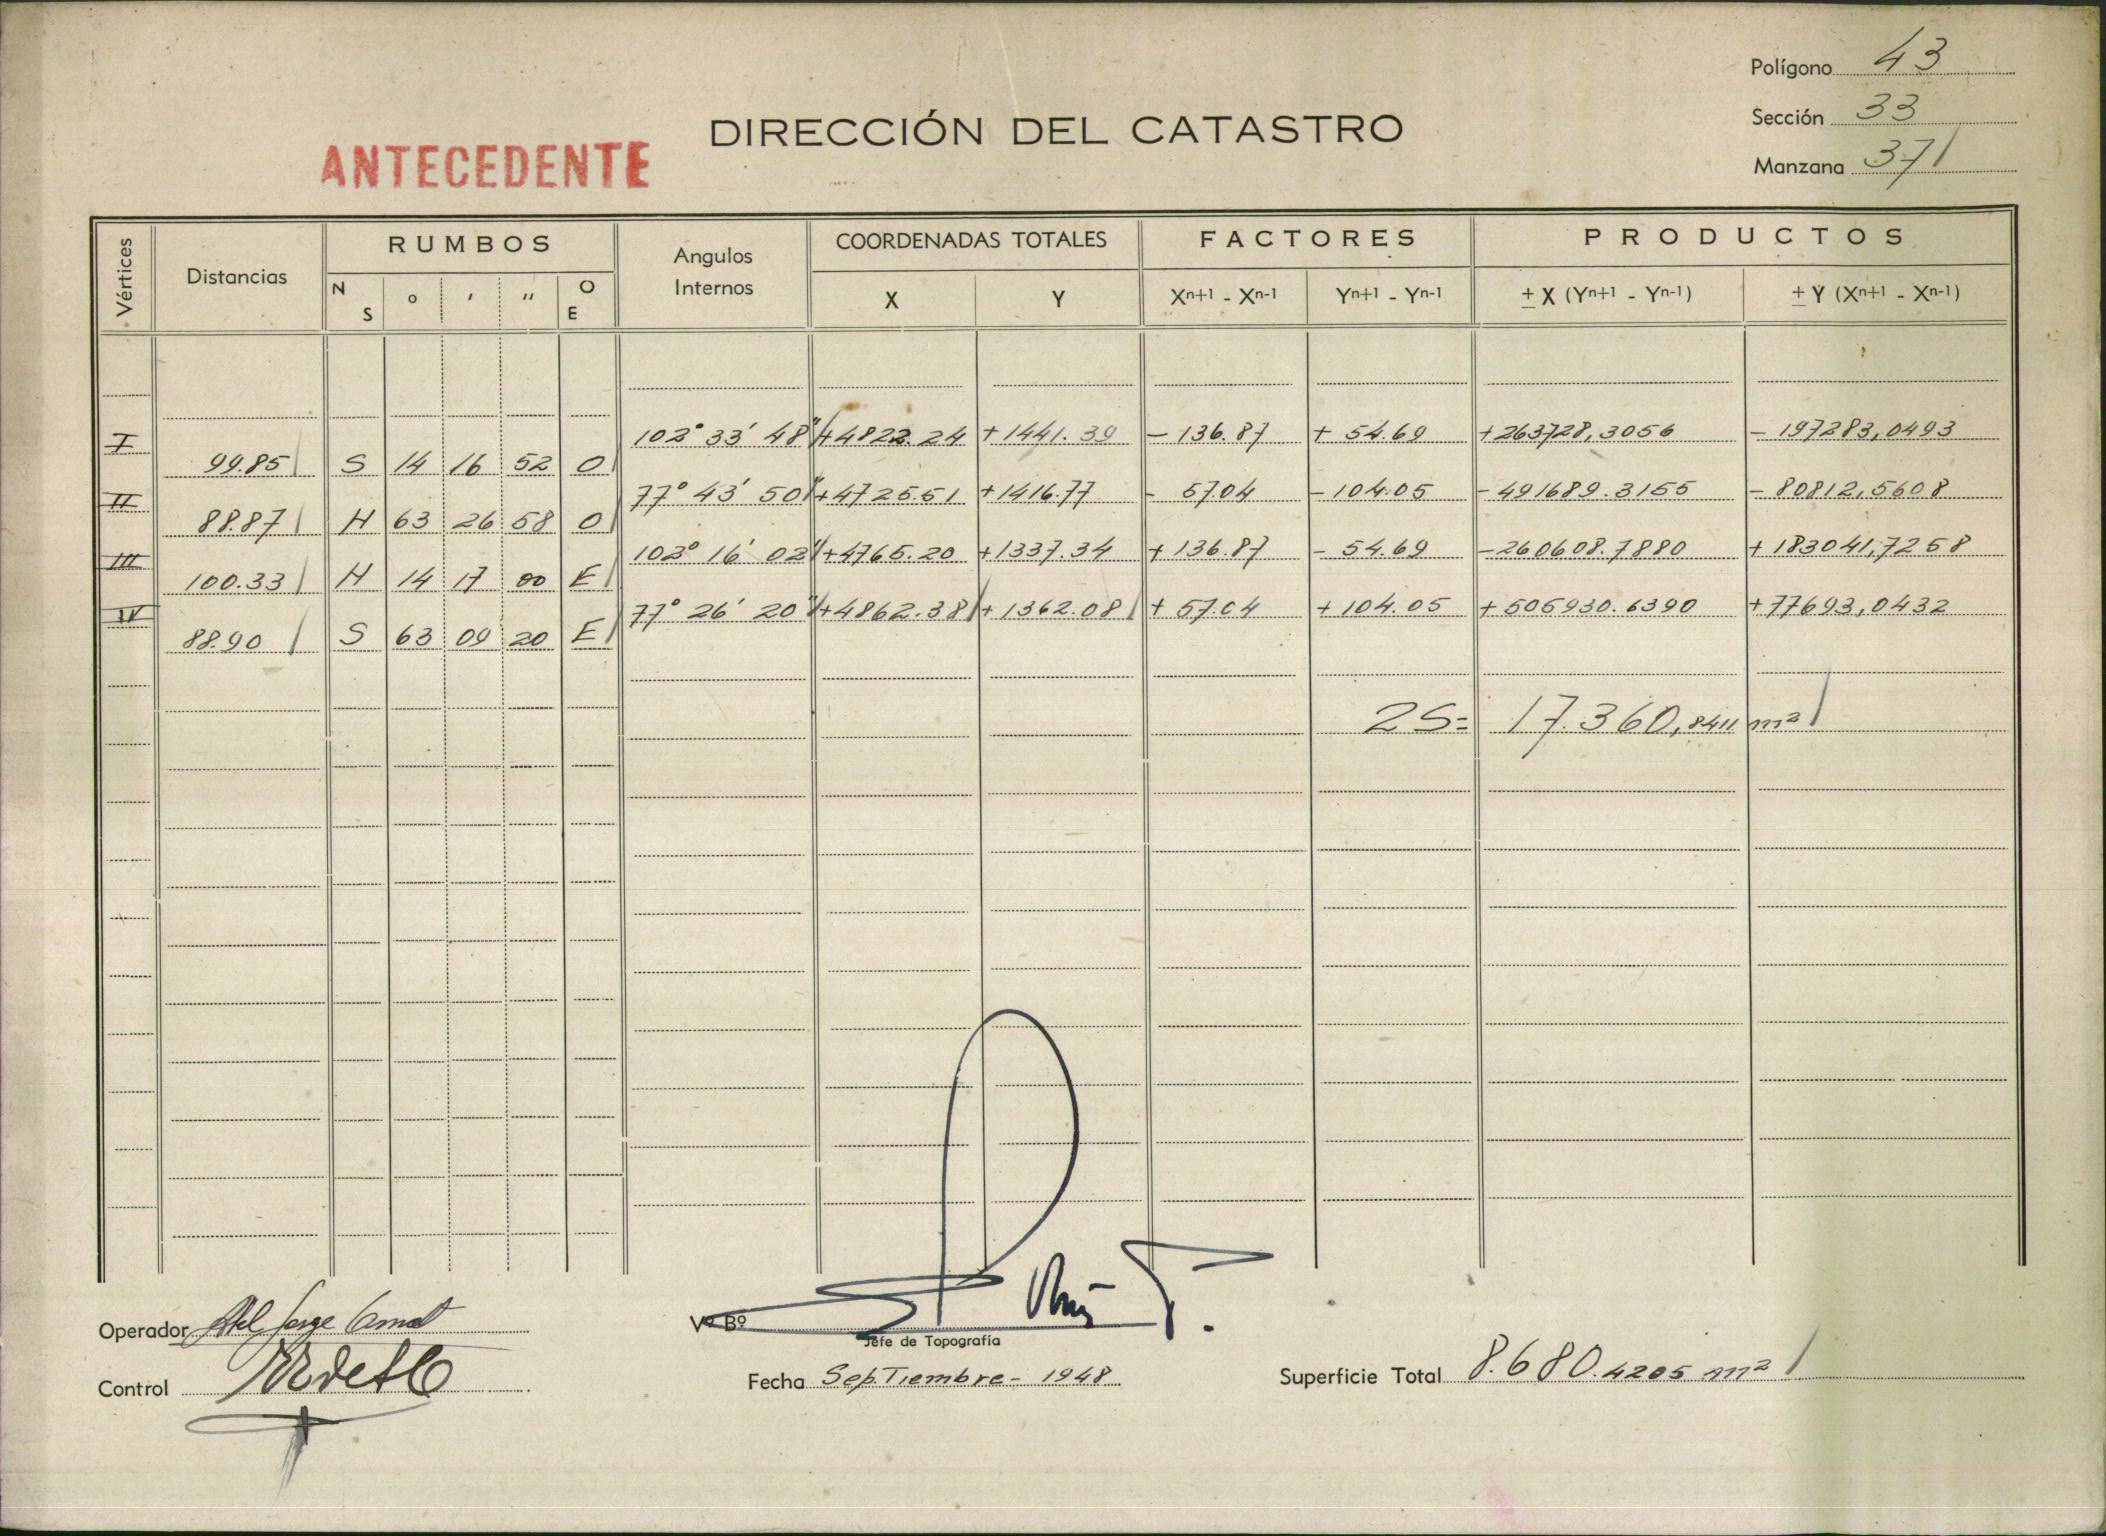 Polígono 43
Sección 33
Manzana 371
DIRECCIÓN DEL CATASTRO
ANTECEDENTE
Vértices Distancias RUMBOS Angulos Internos COORDENADAS TOTALES FACTORES PRODUCTOS
N S ° ' " O E X Y Xn+1 - Xn-1 Yn+1 - Yn-1 ± X (Yn+1 - Yn-1) ± Y (Xn+1 - Xn-1)
I 102° 33' 48" +4822.24 +1441.39 - 136.87 + 54.69 +263728,3056 - 197283,0493
99.85 S 14 16 52 O
II 77° 43' 50" +4725.51 +1416.77 - 57.04 - 104.05 - 491689.3155 - 80812,5608
88.87 N 63 26 58 O
III 102° 16' 02" +4765.20 +1337.34 + 136.87 - 54.69 - 260608.7880 + 183041,7258
100.33 N 14 17 00 E
IV 77° 26' 20" +4862.38 + 1362.08 + 57.04 + 104.05 + 505930.6390 +77693,0432
88.90 S 63 09 20 E
2S= 17.360,8411 m²
Operador
Vº Bº
Jefe de Topografía
Control
Fecha SepTiembre - 1948
Superficie Total 8.680.4205 m²